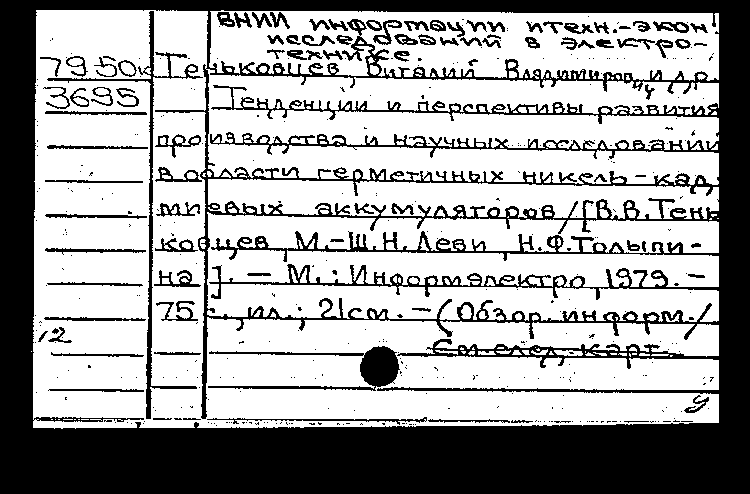 ВНИИ информации и техн.-экон.
исследований в электро-
технике.
7950к Теньковцев, Виталий Владимирович и др.
3695 Тенденции и перспективы развития
производства и научных исследований
в области герметичных никель-кад-
миевых аккумуляторов / [В.В.Тень-
ковцев, М.-Ш.Н.Леви, Н.Ф.Толыпи-
на]. — М.: Информэлектро, 1979. —
75 с., ил.; 21см. — (Обзор. информ./
12
См. след. карт.
9